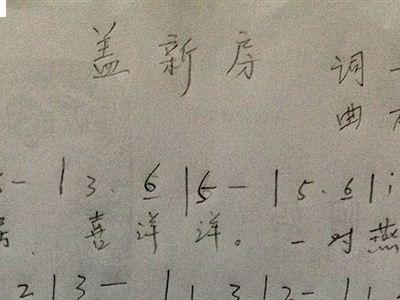 盖新房
词
曲
- | 3. 6 | 5 - | 5. 6 | i
喜洋洋。一对燕
2 | 3 - | 1 3 | 2 - |